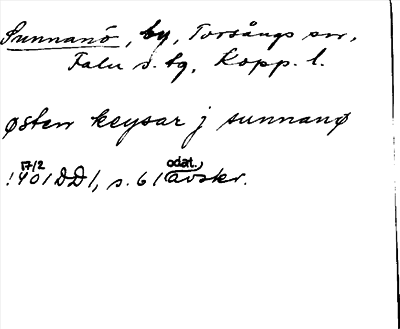 Sunnanö, by, Torsångs sn,
Falu s. tg, Kopp. l.
østen keysar j sunnanø
17/2 odat.,
1401 DD 1, s. 61 avskr.